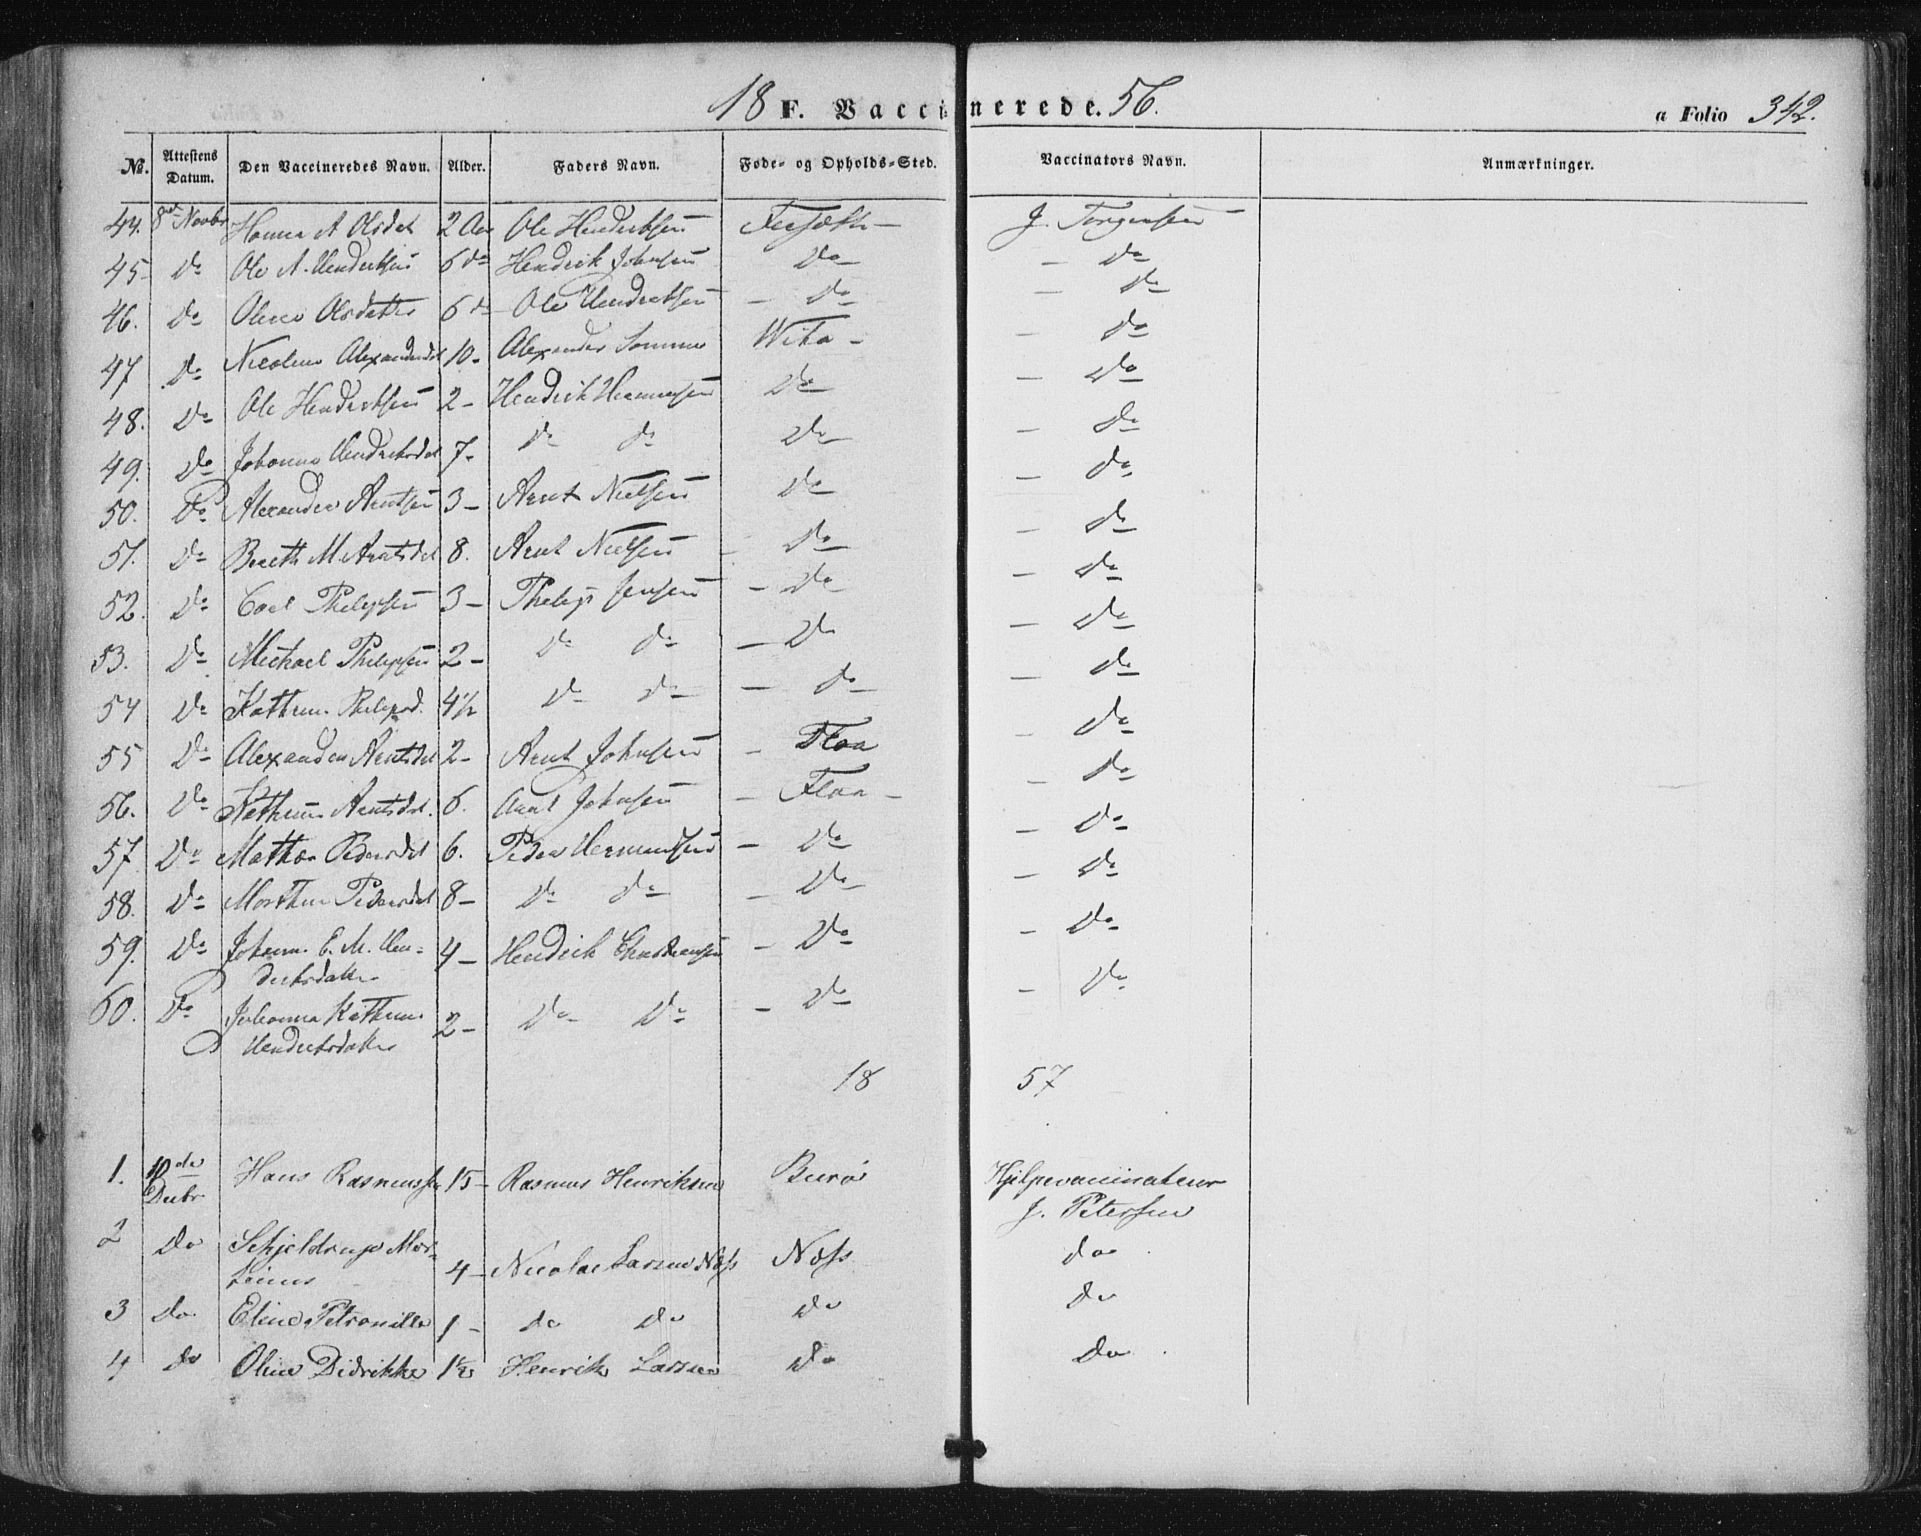 18 F. Vaccinerede. 56. a Folio 342.
No. Attestens Datum. Den Vaccineredes Navn. Alder. Faders Navn. Føde- og Opholds-Sted. Vaccinators Navn. Anmærkninger.
44. 8de Novbr Hanna A Olsdat 2 Aar Ole Hendriksen — J. Torgersen —
45 Do Ole A. Hendriksen 6 do Hendrik Johnsen Do — Do
46. Do Olava Olsdatter 6 do Ole Hendriksen — Do — Do
47 Do Nicoline Alexandersdat 10 - Alexander Sommer — Do
48. Do Ole Hendriksen 2 - Hendrik Hermansen Do — Do
49. Do Johanna Hendriksdat 7 - Do Do Do — Do
50. Do Alexander Arntsen 3 - Arnt Nielsen Do — Do
51. Do Bereth M. Arntsdat 8. Arnt Nielsen — Do — Do
52. Do Carl Philipsen 3 - Philip Jensen — Do — Do
53. Do Michael Philipsen 2 - Do Do — Do — Do
54 Do Kathrine Philipsd. 4½ Do Do — Do — Do
55 Do Alexandra Arntsdat 2 - Arnt Johnsen — Floa — Do
56. Do Kathrine Arntsdat. 6. Arnt Johnsen — Floa — — Do
57 Do Mathea Pedersdat 6. Peder Hermansen — Do — Do
58. Do Marthine Pedersdat 8 - Do Do — Do — Do
59. Do Johanna E. M. Hen- 4 - Hendrik Christiansen — Do — Do
driksdatter
60. Do Johanna Kathrine 2 - Do Do — Do — Do
Hendriksdatter
18 57
1. 10de Hans Rasmussen 15 - Rasmus Henriksen Burø Hjelpevaccinateur
Decbr J. Petersen
2 Do Schjeldrup Mar- 4 - Nicolai Larsen Næss Næss do
3 Do Eline Petronille 1 - do do do do
4 do Oline Didrikke 1½ Henrik Larsen do do